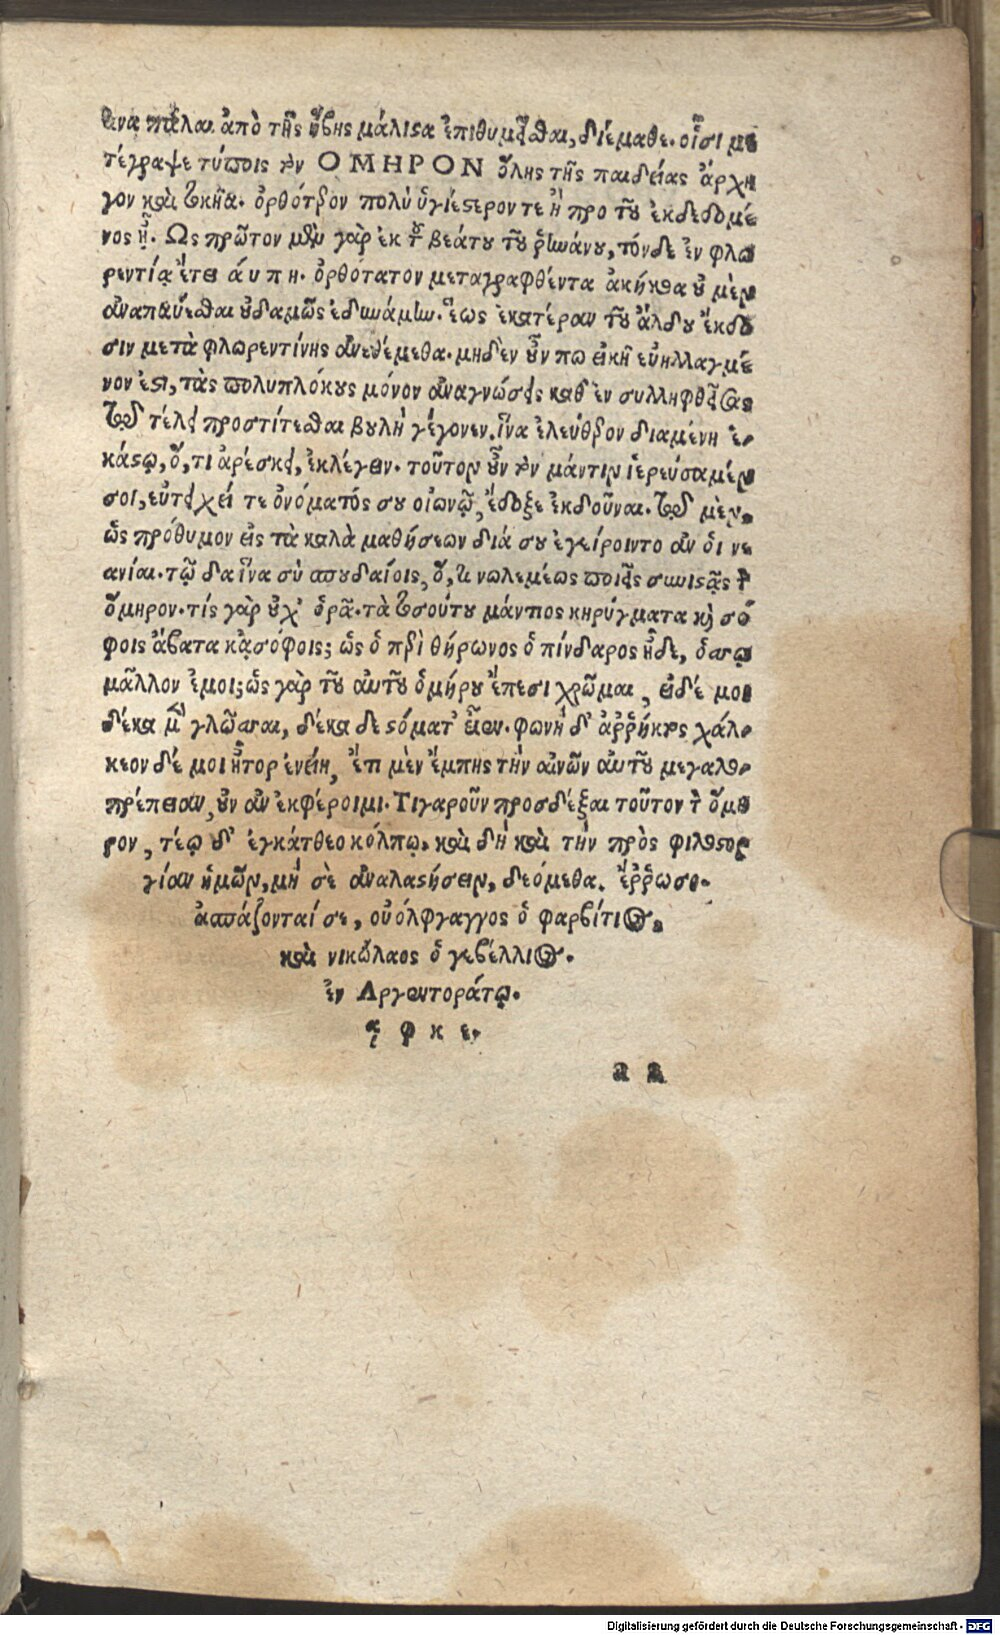 ἀπὸ τῆς ἥβης μάλιϛα ἐπιθυμεῖσθαι, διέμαθε. οἷσι με
τέγραψε τύποις τὸν ΟΜΗΡΟΝ ὅλης τῆς παιδείας ἀρχη
γον καὶ ὀρθότερον πολὺ ὑγιέϛερον τε ἢ προ τοῦ ἐκδεδομέ
νος ᾖ. Ως πρῶτον μὲν γὰρ ἐκ τοῦ βεάτου τοῦ ῥηνάνου, τόνδε ἐν φλω
ρεντίᾳ ἔτει α υ π η. ὀρθότατον μεταγραφθέντα ἀκήκοα οὐ μὲν
ἀναπαύεσθαι οὐδαμῶς ἐδυνάμην. ἕως ἑκατέραν τοῦ ἄλδου ἔκδο
σιν μετὰ φλωρεντίνης ἀνεθέμεθα. μηδὲν οὖν πω εἰκῆ ἐνηλλαγμέ
νον ἐϛι, τὰς πολυπλόκους μόνον ἀναγνώσεις καθ' ἓν συλληφθείσας
τῷ τέλει προστίτεσθαι βουλὴ γέγονεν. ἵνα ἐλεύθερον διαμένη ἑ-
κάϛῳ, ὅ, τι ἀρέσκει, ἐκλέγειν. τοῦτον οὖν τὸν μάντιν ἱερεύσαμέν
σοι, εὐτυχεῖ τε ὀνόματός σου οἰωνῷ, ἔδοξε ἐκδοῦναι. τῷ μὲν,
ὡς πρόθυμον εἰς τὰ καλὰ μαθήσεων διά σου ἐγείροιντο ἂν ὁι νε
ανίαι. τῷ δα ἵνα σὺ σπουδαίοις, ὅ, νωλεμέως ποιεῖς συνιϛᾷς τὸν
ὅμηρον. τίς γὰρ οὐχ' ὁρᾷ. τὰ τοσούτου μάντιος κηρύγματα καὶ σό
φοις ἄβατα κᾀσόφοις; ὡς ὁ περὶ θήρωνος ὁ πίνδαρος ᾖδε, ὅσῳ
μᾶλλον ἐμοι; ὡς γὰρ τοῦ αὐτοῦ ὁμήρου ἔπεσι χρῶμαι, εἰδέ μοι
δέκα μὲν γλῶσσαι, δέκα δε ϛόματ' εἶεν. φωνὴ δ' ἄῤῥηκτος χάλ-
κεον δέ μοι ἦτορ ἐνείη, ἔτι μὲν ἔμπης τὴν αἰνῶν αὐτοῦ μεγαλο-
πρέπειαν, οὐν ἂν ἐκφέροιμι. Τιγαροῦν προσδέξαι τοῦτον τὸν ὅμη
ρον, τέῳ δ' ἐγκάτθεο κόλπῳ. καὶ δὴ καὶ τὴν πρὸς φιλοϛορ
γίαν ἡμῶν, μὴ σὲ ἀναλαϛήσειν, δεόμεθα. ἔῤῥωσο.
ἀσπάζονταί σε, οὐόλφγαγγος ὁ φαρβίτιος,
καὶ νικόλαος ὁ γεβέλλιος.
ἐν Αργεντοράτῳ.
͵α φ κ ε.
a 2